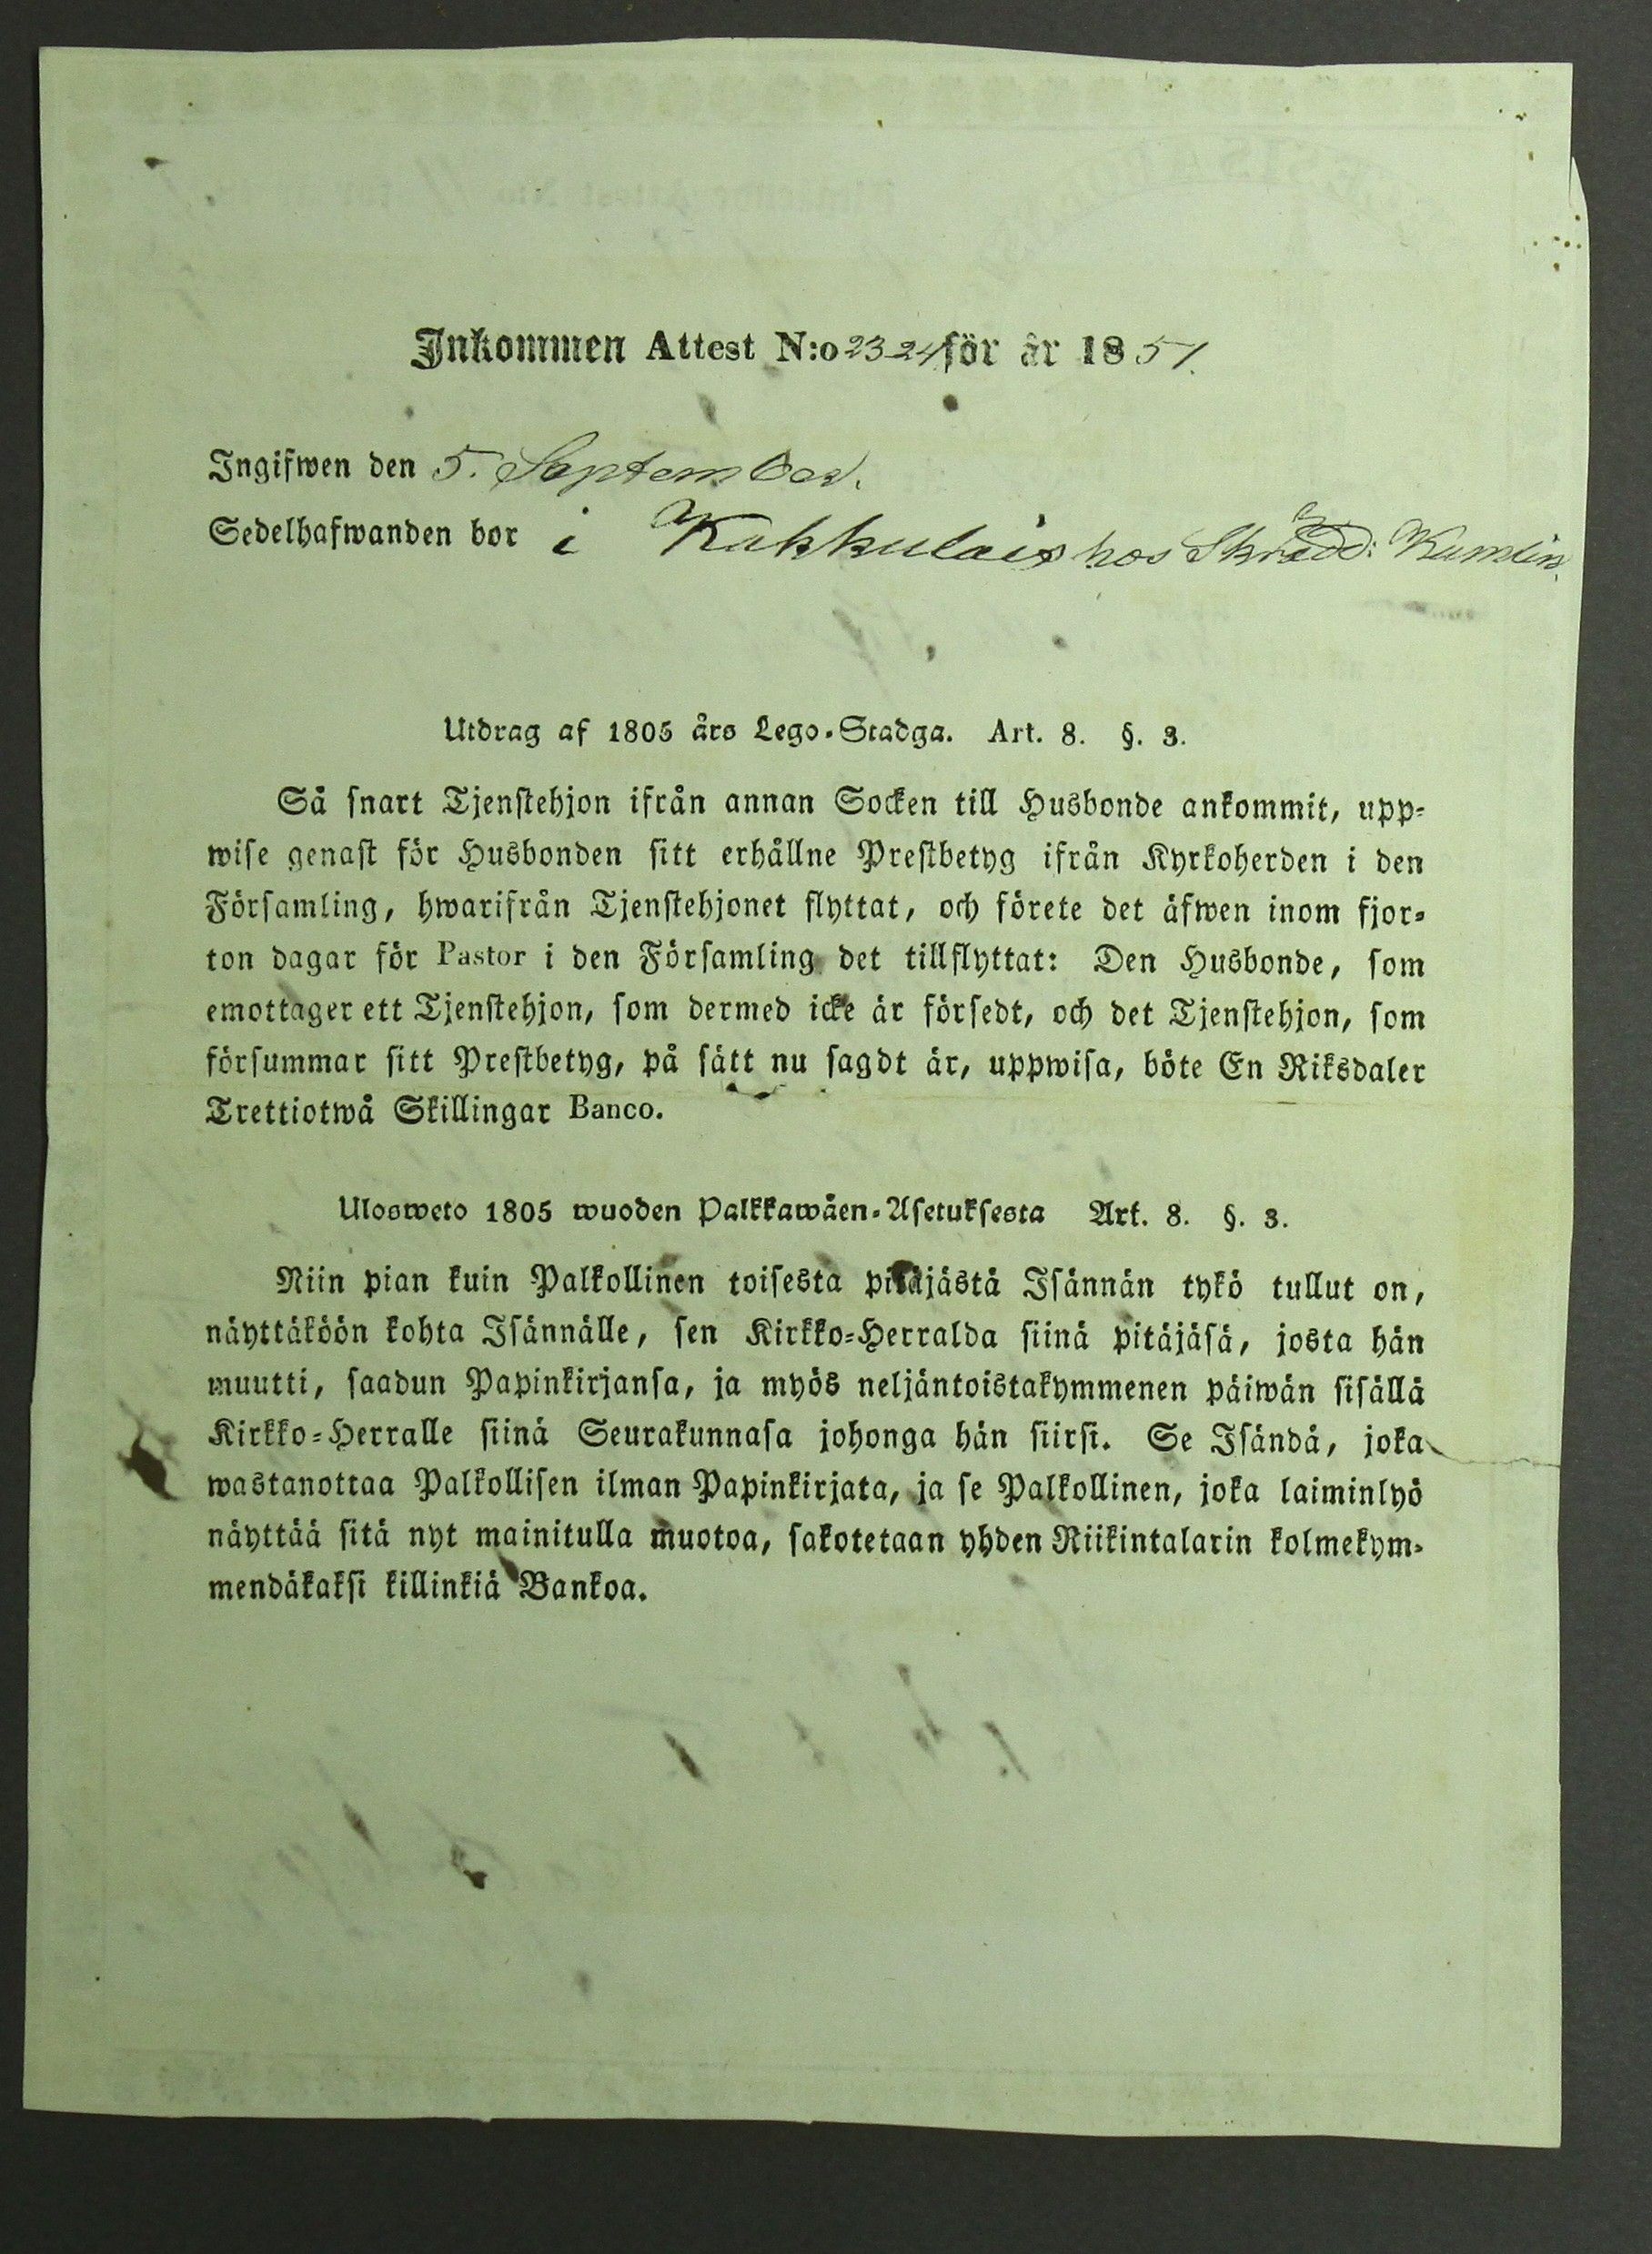 Inkommen Attest N:o 23 24 för år 1851.
Ingifwen den 5. September.
Sedelhafwanden bor i Kakkulais hos Skrädd: Kumlin.
Utdrag af 1805 års Lego-Stadga. Art. 8. §. 3.
Så snart Tjenstehjon ifrån annan Socken till Husbonde ankommit, upp-
wise genast för Husbonden sitt erhållne Prestbetyg ifrån Kyrkoherden i den
Församling, hwarifrån Tjenstehjonet flyttat, och förete det äfwen inom fjor-
ton dagar för Pastor i den Församling det tillflyttat: Den Husbonde, som
emottager ett Tjenstehjon, som dermed icke är försedt, och det Tjenstehjon, som
försummar sitt Prestbetyg, på sätt nu sagdt är, uppwisa, böte En Riksdaler
Trettiotwå Skillingar Banco.
Ulosweto 1805 wuoden Palkkawäen-Asetuksesta Art. 8. §. 3.
Niin pian kuin Palkollinen toisesta pitäjästä Isännän tykö tullut on,
näyttäköön kohta Isännälle, sen Kirkko-Herralda siinä pitäjäsä, josta hän
muutti, saadun Papinkirjansa, ja myös neljäntoistakymmenen päiwän sisällä
Kirkko-Herralle siinä Seurakunnasa johonga hän siirsi. Se Isändä, joka
wastanottaa Palkollisen ilman Papinkirjata, ja se Palkollinen, joka laiminlyö
näyttää sitä nyt mainitulla muotoa, sakotetaan yhden Riikintalarin kolmekym-
mendäkaksi killinkiä Bankoa.